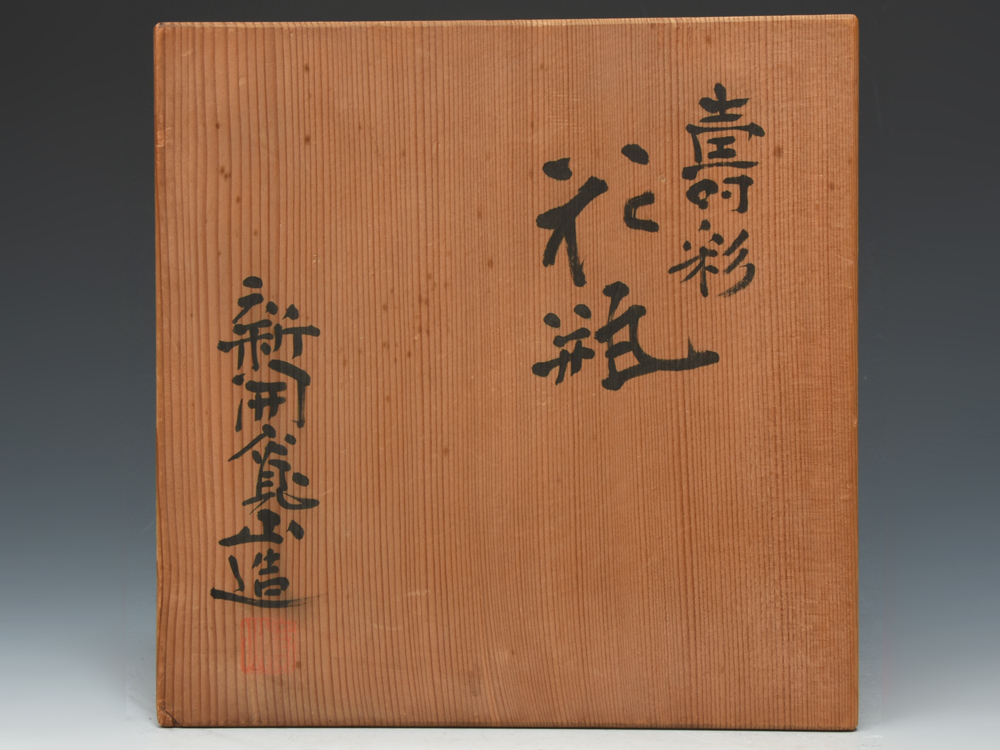 壽彩
花瓶
新開寛山造